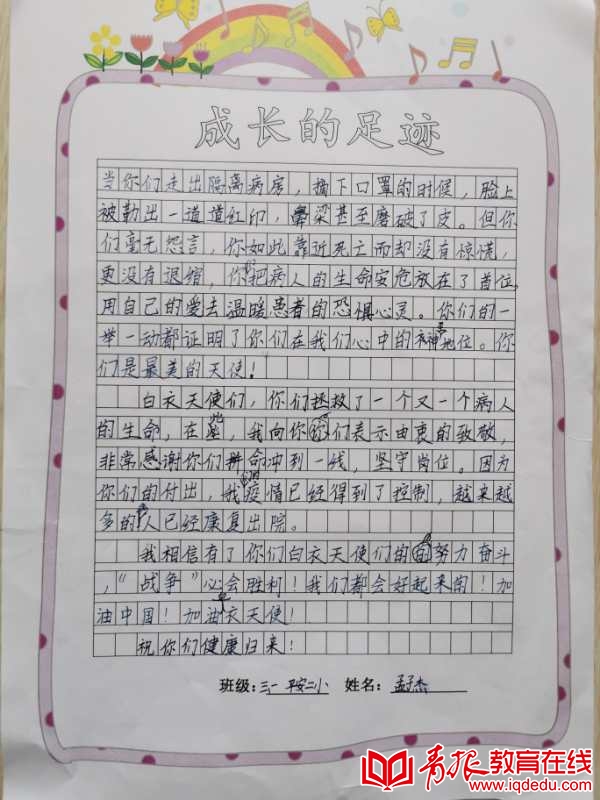 成长的足迹
当你们走出隔离病房，摘下口罩的时候，脸上
被勒出一道道红印，鼻梁甚至磨破了皮。但你
们毫无怨言，你如此靠近死亡而却没有惊慌，
更没有退缩，你们把病人的生命安危放在了首位，
用自己的爱去温暖患者的恐惧心灵。你们的一
举一动都证明了你们在我们心中的神圣地位。你
们是最美的天使！
白衣天使们，你们拯救了一个又一个病人
的生命，在此，我向你们表示由衷的致敬，
非常感谢你们拼命冲到一线，坚守岗位。因为
你们的付出，我们疫情已经得到了控制，越来越
多的人已经康复出院。
我相信有了你们白衣天使们的努力奋斗
，“战争”必会胜利！我们都会好起来的！加
油中国！加油白衣天使！
祝你们健康归来！
班级：三一 平安二小 姓名：孟子杰
青报教育在线
www.iqdedu.com